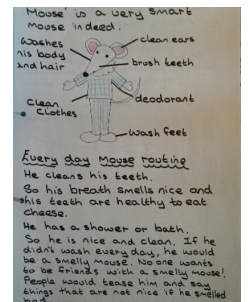 Mouse' is a very smart
mouse indeed.
Washes
his body
and hair
clean ears
brush teeth
Clean
Clothes
deodorant
wash feet
Every day mouse routine
He cleans his teeth.
So his breath smells nice and
his teeth are healthy to eat
cheese.
He has a shower or bath,
So he is nice and clean. If he
didn't wash every day, he would
be a smelly mouse. No one wants
to be friends with a smelly mouse!
People would tease him and say
things that are not nice if he smelled
bad.